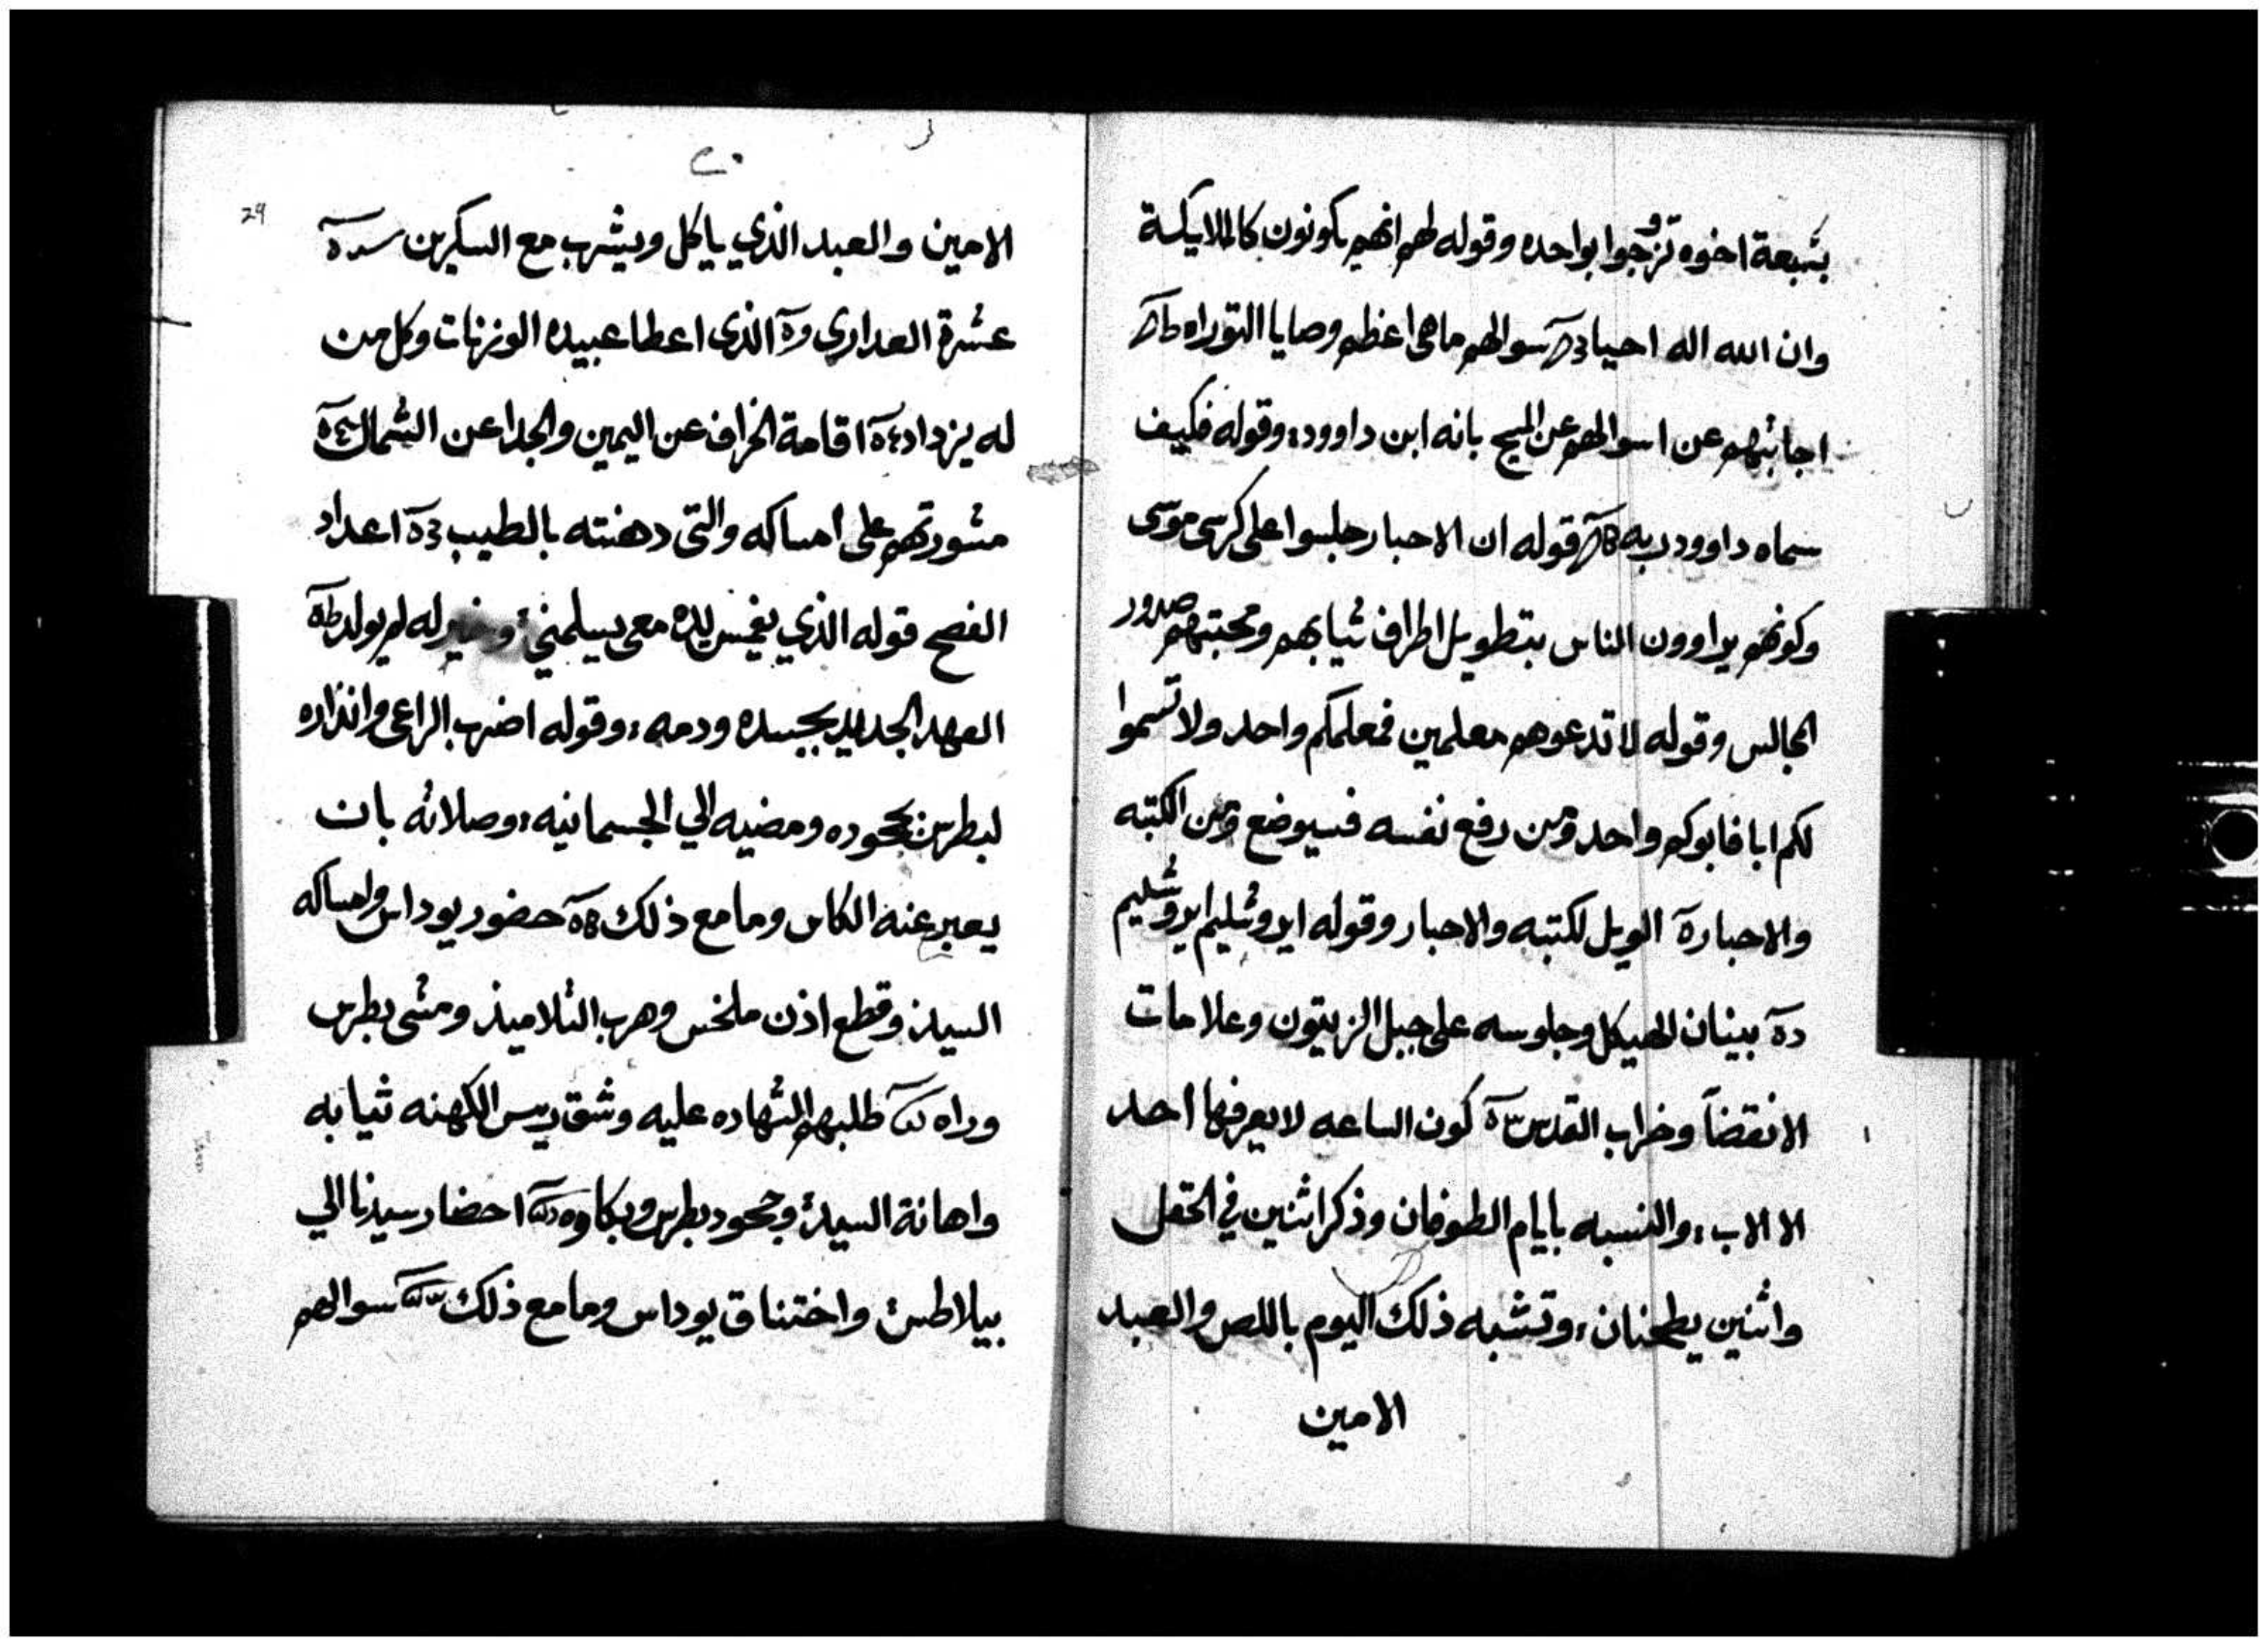 بسبعة اخوه تزوجوا بواحده وقوله لهم انهم يكونون كالملايكة
وان الله اله احيا سوالهم ما هي اعظم وصايا التوراه
اجابتهم عن اسوالهم عن المسيح بانه ابن داوود؛ وقوله فكيف
سماه داوود ربه قوله ان الاحبار جلسوا على كرسي موسى
وكونهم يراوون الناس بتطويل اطراف ثيابهم ومحبتهم صدور
المجالس وقوله لا تدعوهم معلمين فمعلمكم واحد ولا تسموا
لكم ابا فابوكم واحد ومن رفع نفسه فسيوضع ومن الكتبه
والاحبار الويل لكتبه والاحبار وقوله ايروشليم ايروشليم
بينان الهيكل وجلوسه على جبل الزيتون وعلامات
الانقضآ وخراب القدس كون الساعه لا يعرفها احد
الا الاب؛ والنسبه بايام الطوفان وذكر اثنين في الحقل
واثنين يطحنان؛ وتشبه ذلك اليوم باللص والعبد
الامين
٢٠
29
الامين والعبد الذي ياكل ويشرب مع السكيرين
عشرة العداري الذي اعطا عبيده الوزنات وكل من
له يزداد اقامة الخراف عن اليمين والجدا عن الشمال
مشورتهم على امساكه والتي دهنته بالطيب اعداد
الفصح قوله الذي يغمس يده معي يسلمني؛ وخير له لم يولد
العهد الجديد بجسده ودمه؛ وقوله اضرب الراعي وانذاره
لبطرس بجحوده ومضيه الي الجسمانيه؛ وصلاته بان
يعبر عنه الكاس وما مع ذلك حضور يوداس وامساكه
السيد وقطع اذن ملخس وهرب التلاميذ ومشي بطرس
وراه طلبهم الشهاده عليه وشق ريس الكهنه ثيابه
واهانة السيد وجحود بطرس وبكاوه احضار سيدنا الي
بيلاطس واختناق يوداس وما مع ذلك سوالهم